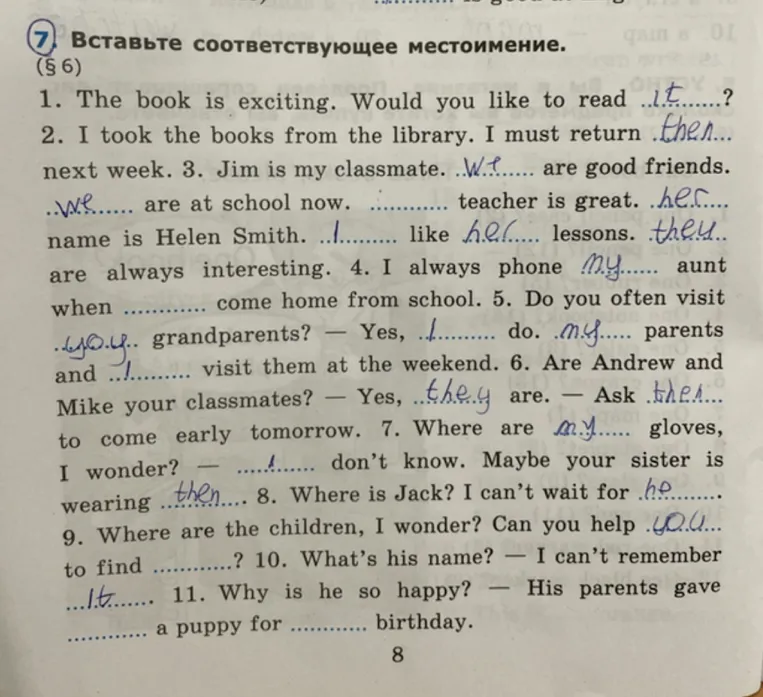 7. Вставьте соответствующее местоимение.
(§ 6)
1. The book is exciting. Would you like to read ..it......?
2. I took the books from the library. I must return .then...
next week. 3. Jim is my classmate. ..We..... are good friends.
..we...... are at school now. ............ teacher is great. .her....
name is Helen Smith. ..I......... like her..... lessons. they..
are always interesting. 4. I always phone my...... aunt
when ............ come home from school. 5. Do you often visit
..you.. grandparents? — Yes, ..I.......... do. .my..... parents
and ..I......... visit them at the weekend. 6. Are Andrew and
Mike your classmates? — Yes, ..they are. — Ask .then...
to come early tomorrow. 7. Where are my..... gloves,
I wonder? — .....I...... don't know. Maybe your sister is
wearing ..then.... 8. Where is Jack? I can't wait for .he........
9. Where are the children, I wonder? Can you help .you...
to find ............? 10. What's his name? — I can't remember
...It....... 11. Why is he so happy? — His parents gave
............ a puppy for ............ birthday.
8